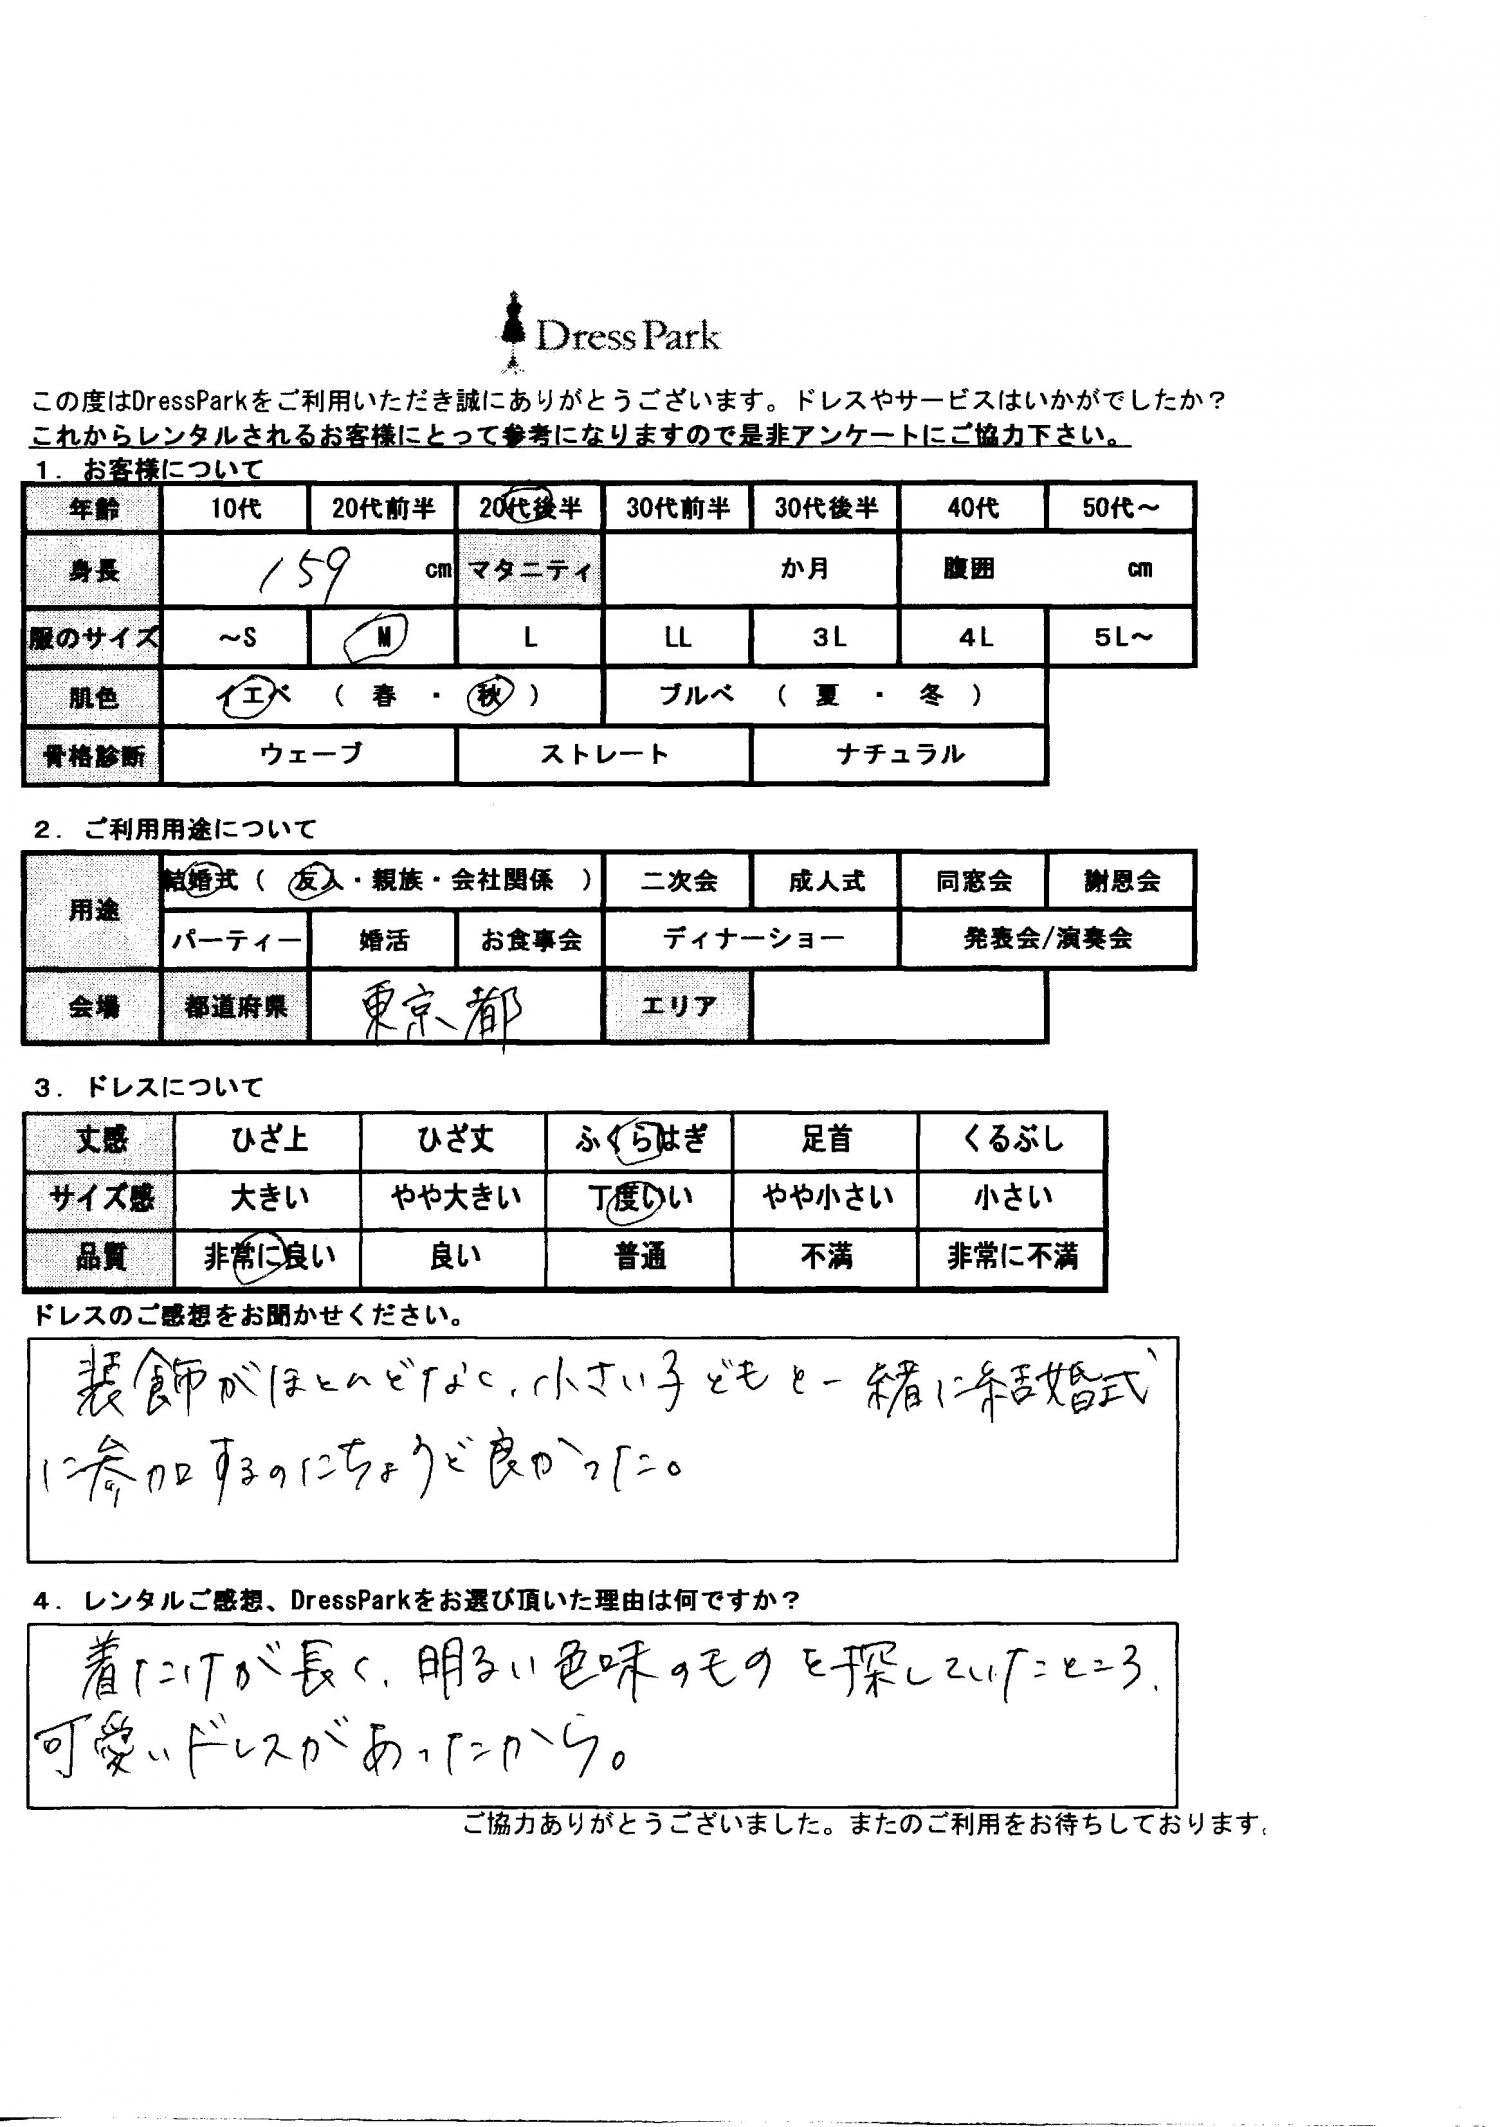 Dress Park
この度はDressParkをご利用いただき誠にありがとうございます。ドレスやサービスはいかがでしたか？
これからレンタルされるお客様にとって参考になりますので是非アンケートにご協力下さい。
1. お客様について
年齢 10代 20代前半 20代後半 30代前半 30代後半 40代 50代～
身長 159 cm マタニティ か月 腹囲 cm
服のサイズ ～S M L LL 3L 4L 5L～
肌色 イエベ （ 春 ・ 秋 ） ブルベ （ 夏 ・ 冬 ）
骨格診断 ウェーブ ストレート ナチュラル
2. ご利用用途について
用途 結婚式（ 友人・親族・会社関係 ） 二次会 成人式 同窓会 謝恩会
パーティー 婚活 お食事会 ディナーショー 発表会/演奏会
会場 都道府県 東京都 エリア
3. ドレスについて
丈感 ひざ上 ひざ丈 ふくらはぎ 足首 くるぶし
サイズ感 大きい やや大きい 丁度いい やや小さい 小さい
品質 非常に良い 良い 普通 不満 非常に不満
ドレスのご感想をお聞かせください。
装飾がほとんどなく、小さい子どもと一緒に結婚式
に参加するのにちょうど良かった。
4. レンタルご感想、DressParkをお選び頂いた理由は何ですか？
着たけが長く、明るい色味のものを探していたところ、
可愛いドレスがあったから。
ご協力ありがとうございました。またのご利用をお待ちしております。